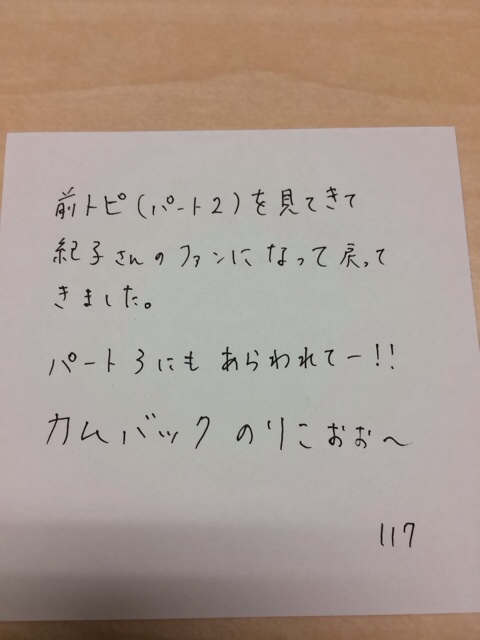 前トピ(パート2)を見てきて
紀子さんのファンになって戻って
きました。
パート3にもあらわれてー!!
カムバックのりこおお〜
117